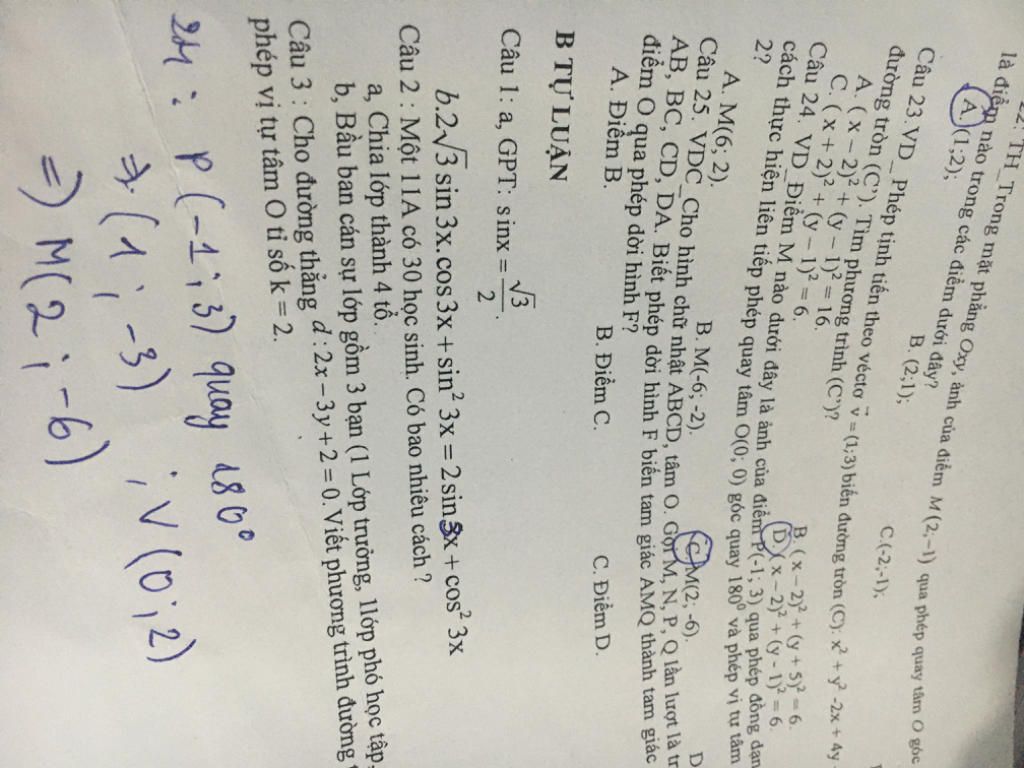 2: TH_Trong mặt phẳng Oxy, ảnh của điểm M (2;-1) qua phép quay tâm O góc
là điểm nào trong các điểm dưới đây?
A. (1;2); B. (2;1); C.(-2;-1);
Câu 23.VD_ Phép tịnh tiến theo véctơ v⃗ = (1;3) biến đường tròn (C): x² + y² -2x + 4y
đường tròn (C’). Tìm phương trình (C’)?
A. ( x – 2)² + (y – 1)² = 16. B. ( x – 2)² + (y + 5)² = 6.
C. ( x + 2)² + (y – 1)² = 6. D. ( x – 2)² + (y - 1)² = 6.
Câu 24. VD_Điểm M nào dưới đây là ảnh của điểm P(-1; 3) qua phép đồng dạn
cách thực hiện liên tiếp phép quay tâm O(0; 0) góc quay 180⁰ và phép vị tự tâm
2?
A. M(6; 2). B. M(-6; -2). C. M(2; -6). D
Câu 25. VDC_Cho hình chữ nhật ABCD, tâm O. Gọi M, N, P, Q lần lượt là tr
AB, BC, CD, DA. Biết phép dời hình F biến tam giác AMQ thành tam giác
điểm O qua phép dời hình F?
A. Điểm B. B. Điểm C. C. Điểm D.
B TỰ LUẬN
Câu 1: a, GPT: sinx = √3/2.
b.2√3 sin 3x.cos 3x + sin² 3x = 2 sin 3x + cos² 3x
Câu 2 : Một 11A có 30 học sinh. Có bao nhiêu cách ?
a, Chia lớp thành 4 tổ.
b, Bầu ban cán sự lớp gồm 3 bạn (1 Lớp trưởng, 1lớp phó học tập,
Câu 3 : Cho đường thẳng d : 2x − 3y + 2 = 0. Viết phương trình đường
phép vị tự tâm O tỉ số k = 2.
24 : P (-1 ; 3) quay 180°
=> (1 ; -3) ; V (0 ; 2)
=) M( 2 ; -6)